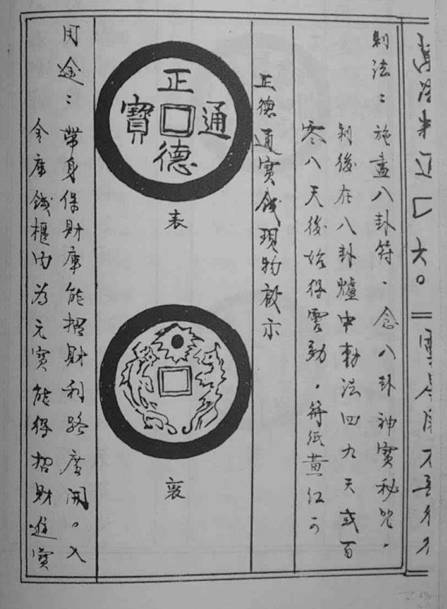 制法：施盡八卦符．念八卦神寶秘咒．
制後在八卦爐中勅法四九天或百
零八天後始得靈動．符紙黃紅可
正德通寶錢現物啟示
正德通寶
表
裏
用途：帶身保財庫能招財利路廣開。入
金庫錢櫃內為元寶能得招財進寶